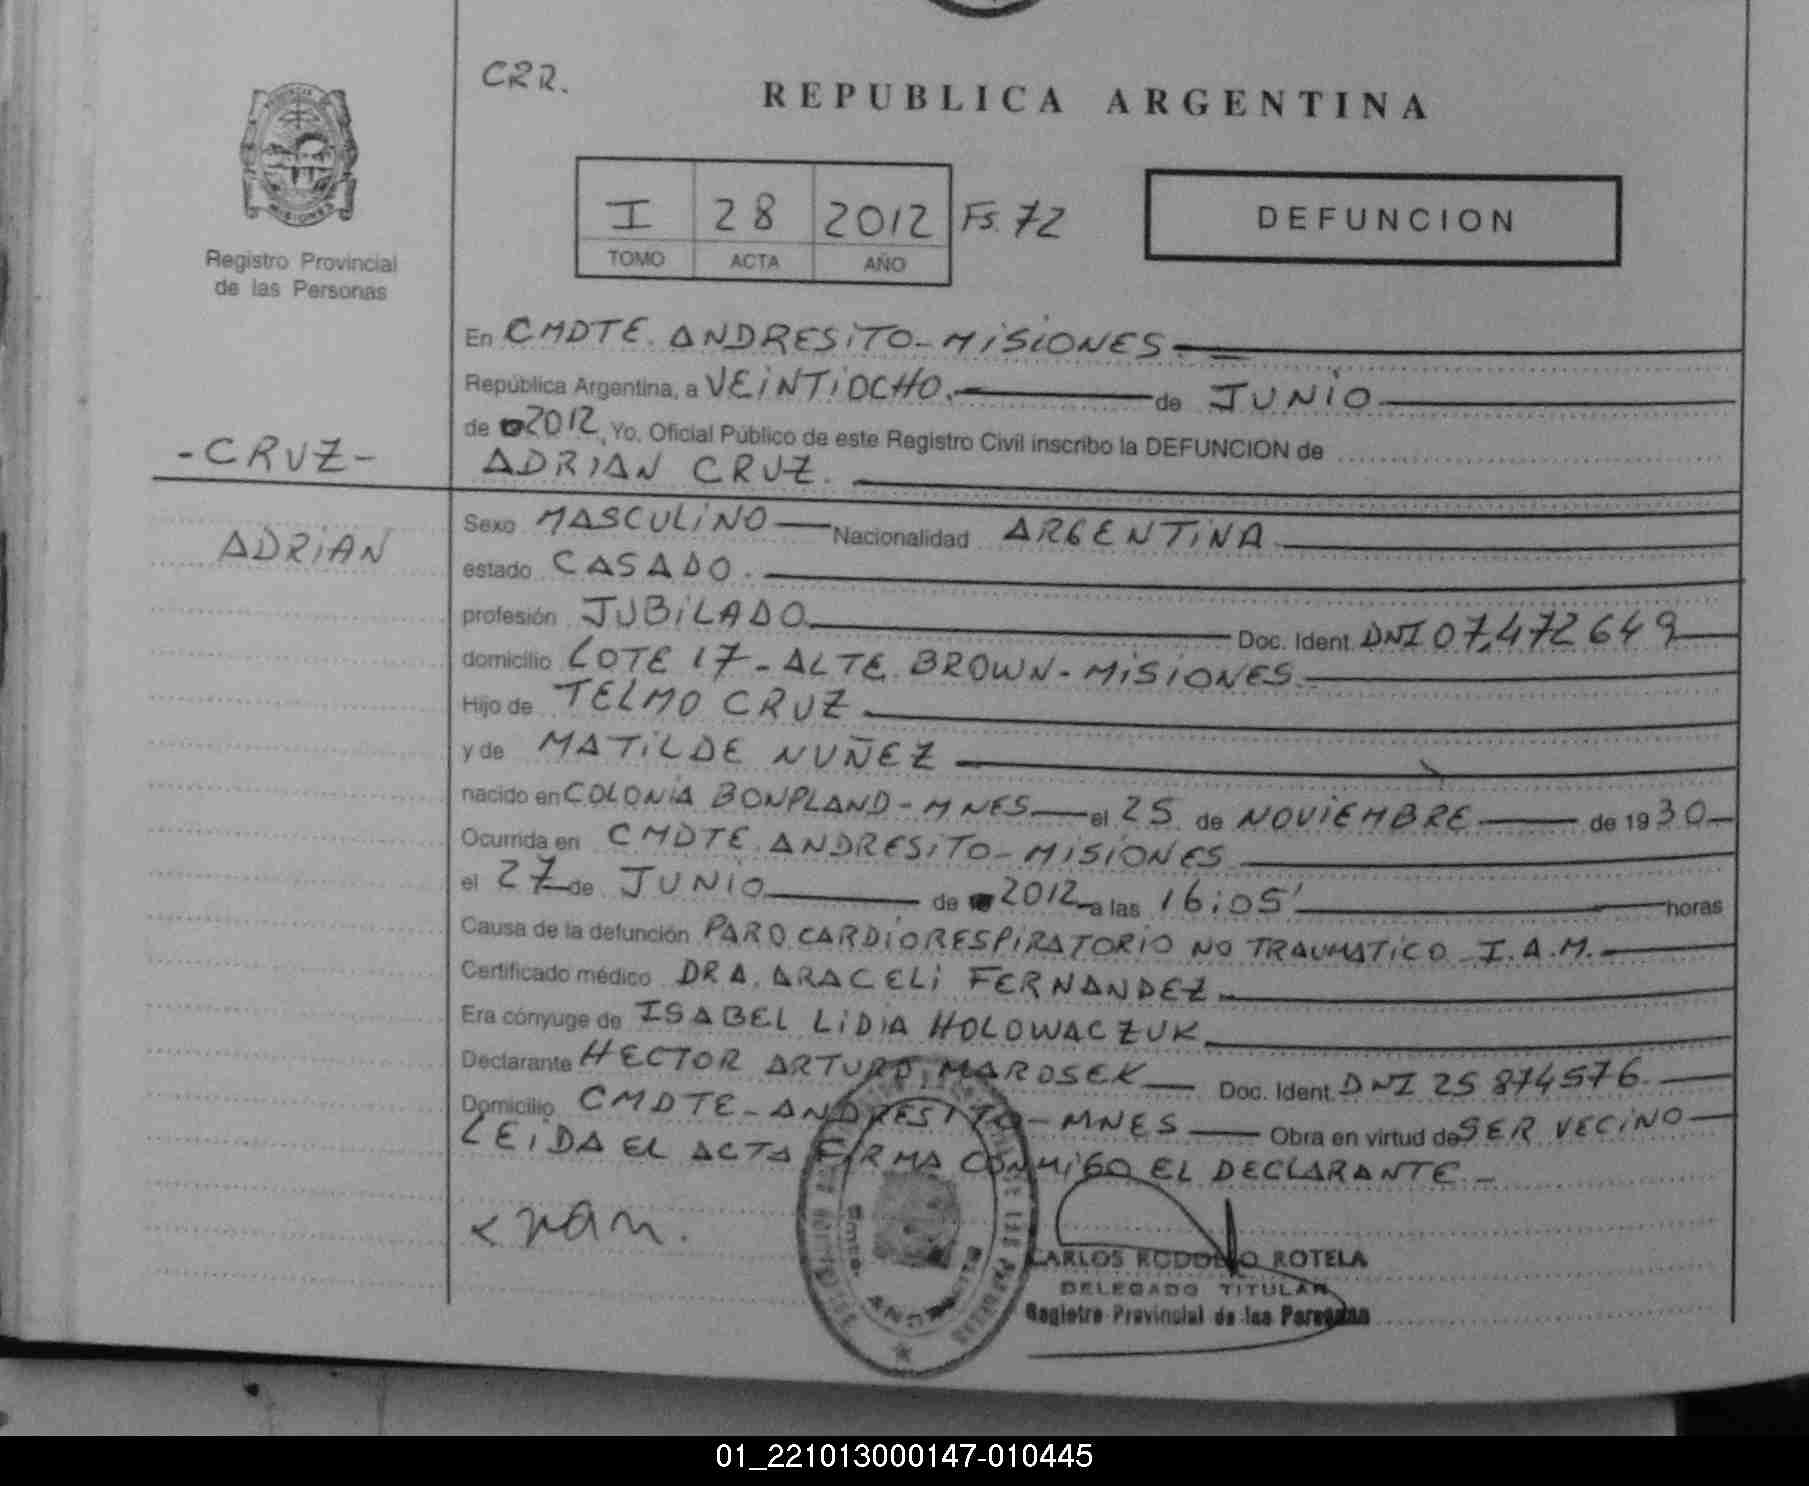 CRR.
REPUBLICA ARGENTINA
MISIONES
Registro Provincial
de las Personas
I 28 2012 Fs. 72
TOMO ACTA AÑO
DEFUNCION
En CMDTE. ANDRESITO - MISIONES
República Argentina, a VEINTIOCHO. de JUNIO
de 2012, Yo, Oficial Público de este Registro Civil inscribo la DEFUNCION de
- CRUZ -
ADRIAN CRUZ.
ADRIAN
Sexo MASCULINO Nacionalidad ARGENTINA
estado CASADO.
profesión JUBILADO Doc. Ident. DNI 07.472649
domicilio LOTE 17 - ALTE. BROWN - MISIONES
Hijo de TELMO CRUZ
y de MATILDE NUÑEZ
nacido en COLONIA BONPLAND - MNES el 25 de NOVIEMBRE de 1930
Ocurrida en CMDTE. ANDRESITO - MISIONES
el 27 de JUNIO de 2012 a las 16:05' horas
Causa de la defunción PARO CARDIORESPIRATORIO NO TRAUMATICO - I.A.M.
Certificado médico DRA. ARACELI FERNANDEZ
Era cónyuge de ISABEL LIDIA HOLOWACZUK
Declarante HECTOR ARTURO MAROSEK Doc. Ident. DNI 25 874576
Domicilio CMDTE - ANDRESITO - MNES Obra en virtud de SER VECINO
LEIDA EL ACTA FIRMA CONMIGO EL DECLARANTE. -
CARLOS RODOLFO ROTELA
DELEGADO TITULAR
Registro Provincial de las Personas
01_221013000147-010445